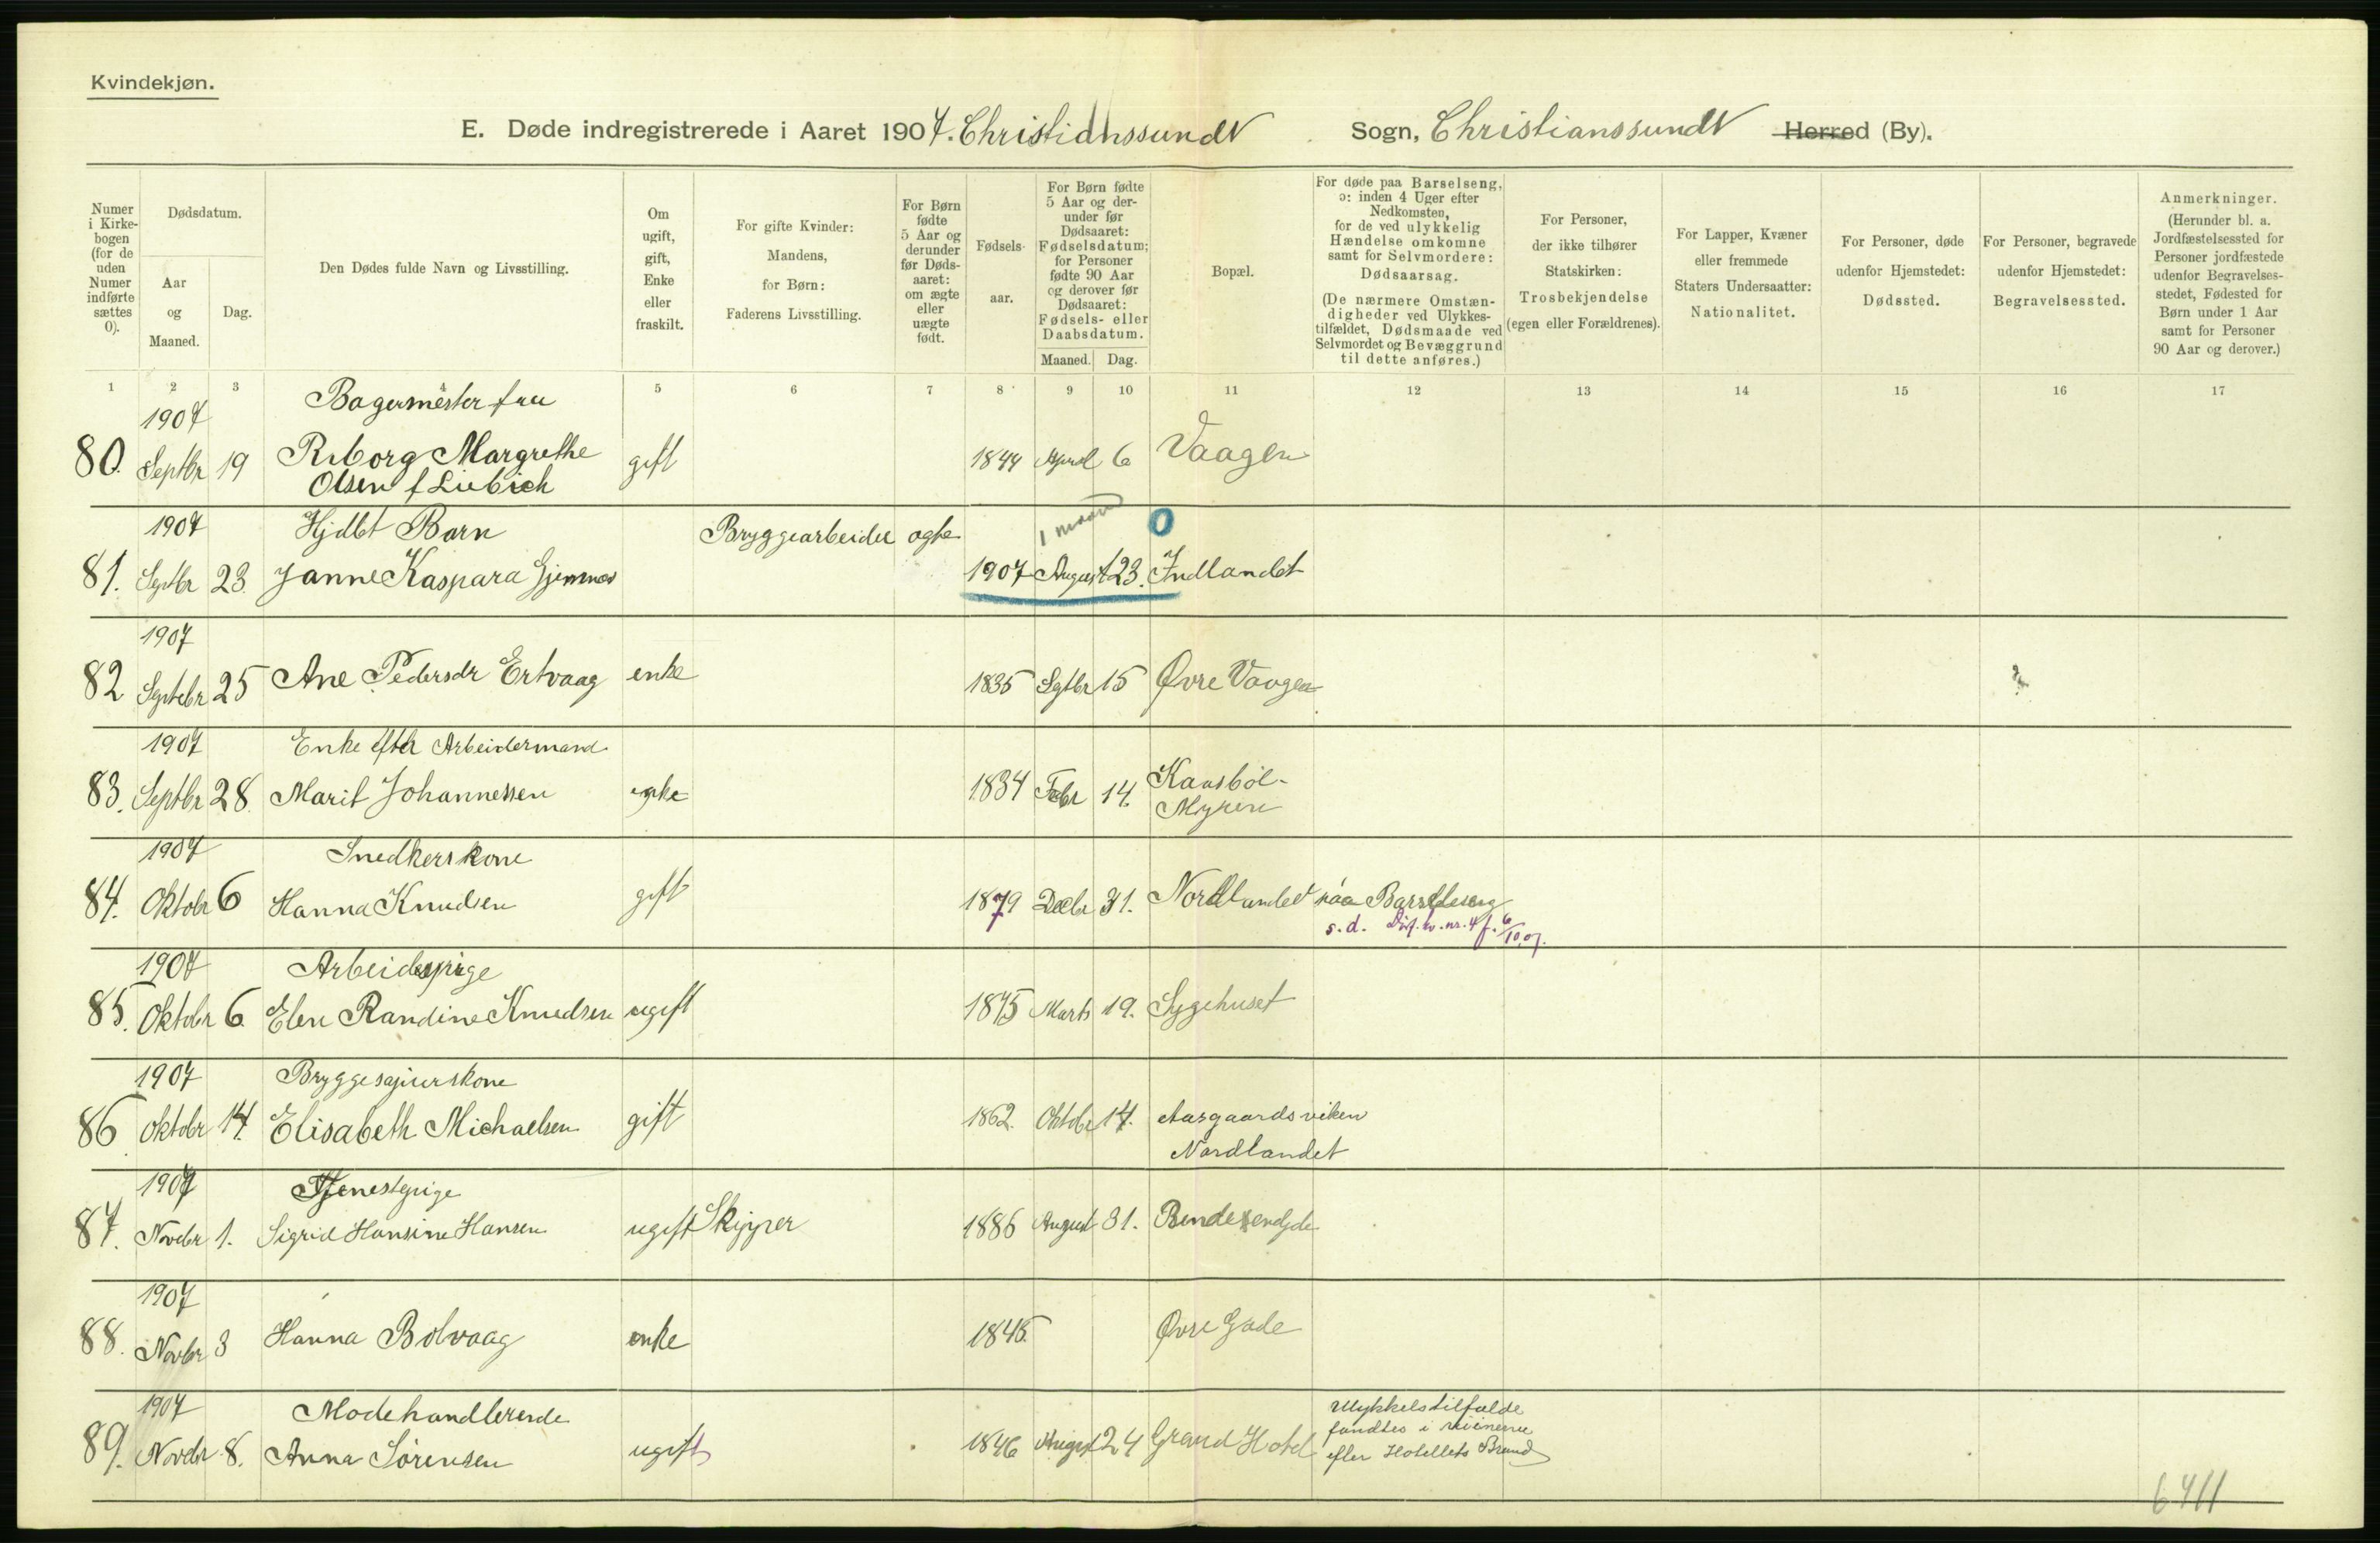 Kvindekjøn.
E. Døde indregistrerede i Aaret 1907. Christianssund Sogn, Christianssund Herred (By).
Numer i Kirkebogen (for de uden Numer indførte sættes 0).
Dødsdatum.
Aar og Maaned.
Dag.
Den Dødes fulde Navn og Livsstilling.
Om ugift, gift, Enke eller fraskilt.
For gifte Kvinder: Mandens, for Børn: Faderens Livsstilling.
For Børn fødte 5 Aar og derunder før Dødsaaret: om ægte eller uægte født.
Fødselsaar.
For Børn fødte 5 Aar og derunder før Dødsaaret: Fødselsdatum; for Personer fødte 90 Aar og derover før Dødsaaret: Fødsels- eller Daabsdatum.
Maaned. Dag.
Bopæl.
For døde paa Barselseng, ɔ: inden 4 Uger efter Nedkomsten, for de ved ulykkelig Hændelse omkomne samt for Selvmordere: Dødsaarsag.
(De nærmere Omstændigheder ved Ulykkestilfældet, Dødsmaade ved Selvmordet og Bevæggrund til dette anføres.)
For Personer, der ikke tilhører Statskirken: Trosbekjendelse (egen eller Forældrenes).
For Lapper, Kvæner eller fremmede Staters Undersaatter: Nationalitet.
For Personer, døde udenfor Hjemstedet: Dødssted.
For Personer, begravede udenfor Hjemstedet: Begravelsessted.
Anmerkninger.
(Herunder bl. a. Jordfæstelsessted for Personer jordfæstede udenfor Begravelsesstedet, Fødested for Børn under 1 Aar samt for Personer 90 Aar og derover.)
1 2 3 4 5 6 7 8 9 10 11 12 13 14 15 16 17
1907 Bagermester fru
80. Septbr 19 Riborg Margrethe gift 1844 April 6 Vaagen
Olsen f Liebich
1907 Hjdbt Barn Bryggearbeider ægte 1 maan 0
81. Septbr 23. Janne Kaspara Gjemnes 1907 August 23. Indlandet
1907
82 Septebr 25 Ane Pedersdr Ertvaag enke 1835 Septbr 15 Øvre Vaagen
1907 Enke efter Arbeidermand
83. Septbr 28. Marit Johannessen enke 1834 Febr 14. Kaasbøl-
Myren
1907 Snedkerskone
84. Oktobr 6 Hanna Knudsen gift 1879 Decbr 31. Nordlandet paa Barselseng
s.d.
1907 Arbeidspige
85. Oktobr 6. Elen Randine Knudsen ugift 1875 Marts 19. Sygehuset
1907 Bryggesjauerskone
86 Oktobr 14. Elisabeth Michaelsen gift 1862. Oktobr 14. Aasgaardsviken
Nordlandet
1907 Tjenestepige
87. Novebr 1. Sigrid Hansine Hansen ugift Skipper 1886 August 31.
1907
88. Novbr 3 Hanna Bolvaag enke 1845. Øvre Gade
1907 Modehandlerende Ulykkelstilfælde
fandtes i ruinerne
89. Novbr 8. Anna Sørensen ugift 1846 August 24 Grand Hotel efter Hotellets Brand
6411